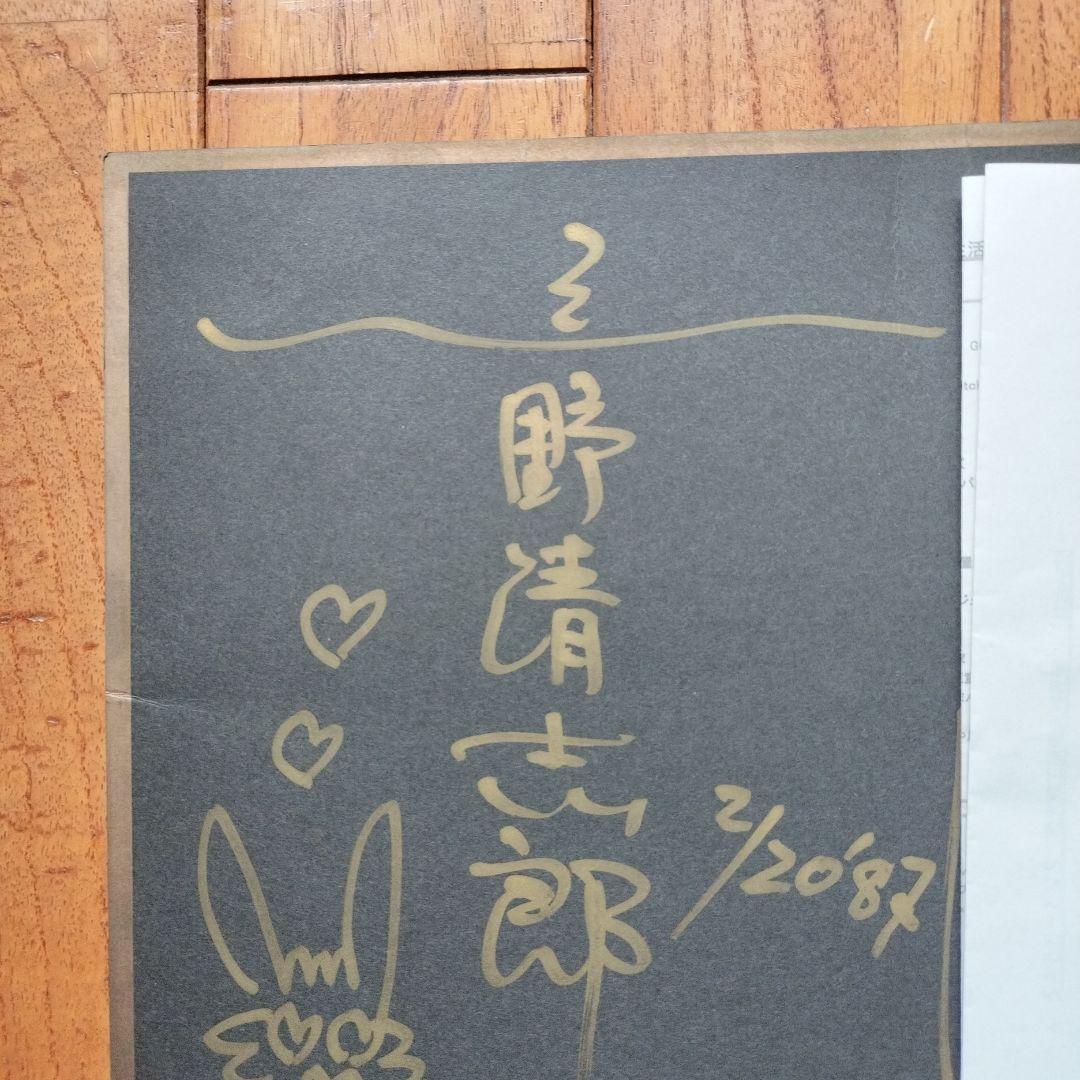 忌野清志郎
2/20 '87
活